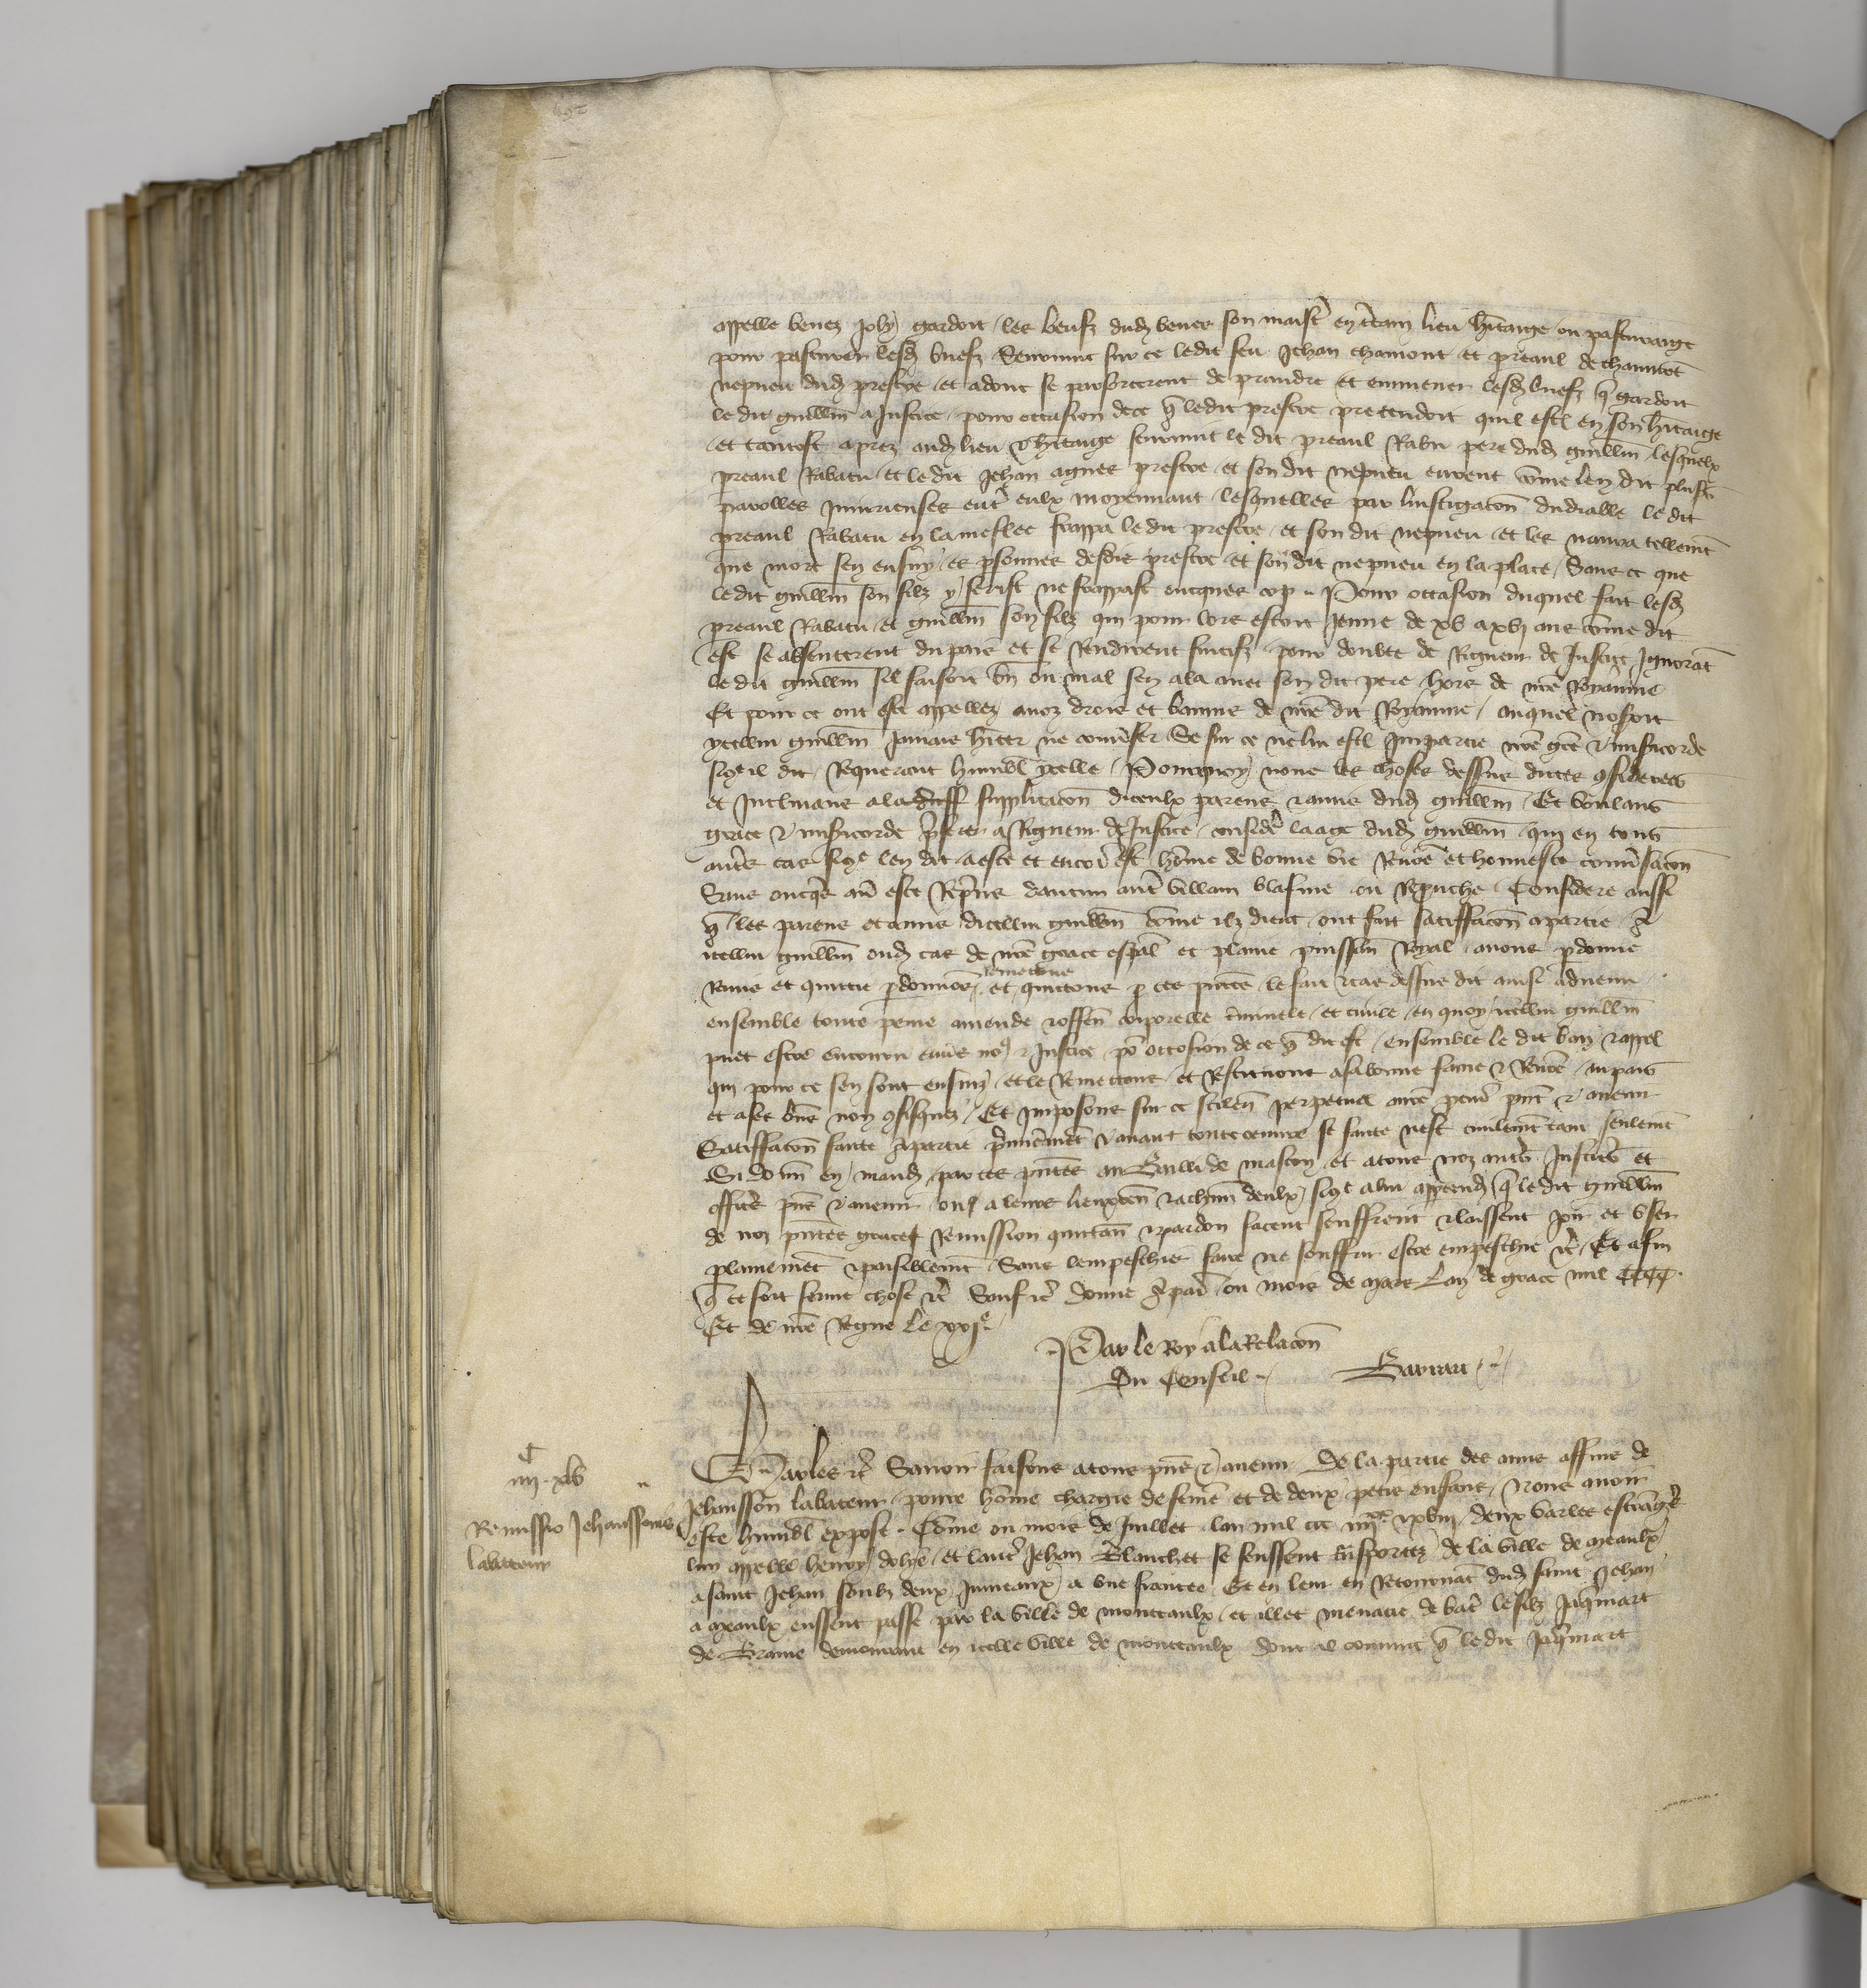 appelle benez joly gardoit les beufz dudit benez son maistr en ctain lieu hitaige ou pasturaige
pour pasturer lesd buefz Seurvint sur ce ledit feu Jehan chamont et preaul de chaumot
nepueu dud prestre et adonc se parforcerent de prandre et emmener lesd buefz q gardoit
le dit guillm a Justice pour occasion de ce q ledit prestre prettendoit quil estl en son hitaige
et tantost aprez aud lieu hitaige seurvint le dit preaul Rabu pere dud guillm lesquelx
preaul Rabatu et ledit Jehan agnes prestre et son dit nepueu eurent come len dit plus
parolles Iniurieuses entr eulx moyennant lesquelles par linstigacon dudiable le dit
preaul Rabatu en la meslee frappa le dit prestre et son dit nepueu et les navra tellemt
que mort sen ensuy es psonnes desdis prestre et son dit nepueu en la place Sans ce que
ledit guillm son filz y ferist ne frappast oncques cop Pour occasion duquel fait lesd
preaul Rabatu et guillm son filz qui pour lors estoit Jeune de xv a xvj ans come dit
est se absenterent du pais et se Rendirent fuitifz pour doubte de Rigueur de Justice Ignorat
le dit guillm sil faisoit bn ou mal sen ala avec son dit pere hors de nre Royaume
Et pour ce ont este appellez a noz drois et bannis de nre dit Royaume auquel noseroit
ycellui guillm Jamais hiter ne conuser Se sur ce ne lui estl Impartie nre gce misicorde
sicoe il dit Requerant humbl ycelle Pourquoy nous les choses dessus dictes 9siderees
et Inclinans a la supplicacon diceulx parens amis dud guillm Et voulans
grace misicorde pferer a Rigueur de Justice consider laage dud guillm qui en tous
autrs cas sicoe len dit a este et encor est home de bonne vie Rnoe et honneste conusacon
Sans oncqs avr este Repns daucun aut villain blasme ou Reprouche Considere aussi
q les parens et amis dicellui guillm come ilz dient ont fait satisffacon a partie A
icellui guillm oud cas de nre grace espal et plaine puissan Royal avons pdonne
Remis et quictie pdonnons Remectons et quictons p ces pntes le fait cas dessus dit ainsi advenu
ensemble toute peine amende offen corporelle criminele et civile en quoy icellui guillm
puet estre encouru envs no9 Justice po occasion de ce q dit est ensemble le dit ban appel
qui pour ce sen sont ensuiz et le Remettons et Restituons a sa bonne fame Rnoe au pais
et a ses bns non 9fisquez Et Imposons sur ce scilen perpetuel a nre pcur pnt avenir
Satisffacon faicte a partie premiermet avant toute oeuvre se faicte nest civilemt tant seulemt
Si donn en mand par ces pntes au Bailli de mascon et a tous noz autrs Justicrs et
officrs pns avenir ou a leurs lieuxten a chun deulx sicoe a lui appartiend q le dit guillm
de noz pntes grace Remission quittan pardon facent seuffrent laissent joir et user
plainemet paisiblemt Sans lempeschier faire ne souffrir estre empeschie etc Et afin
q ce soit ferme chose etc Sauf etc Donne a paris ou mois de mars Lan de grace mil CCCC
Et de nre Regne le xxje
Par le Roy a la Relacon
Du Conseil
Barrau
iiijC xlv
Remissio Jehansson
labateur
Charles etc Savoir faisons a tous pns avenir De la partie des amis affins de
Jehansson labateur povre home chargie de feme et de deux petis enfans Nous avoir
este humbl expose Come ou mois de Juillet lan mil ccc iiijxx xviij deux varles estrangrs
lun appelle henry dolyse et lautr Jehan Blanchet se feussent tnsportez de la ville de meaulx
a saint Jehan soubz deux Jumeaux a une franee Et en leur en Retournat dud saint Jehan
a meaulx eussent passe par la ville de monceaulx et illec menacie de batr le filz Jaqmart
de Brame demourant en icelle ville de monceaulx dont il convint q le dit Jaqmart